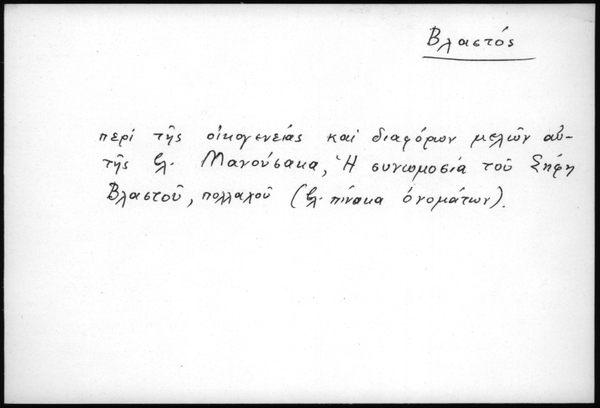 Βλαστός
περὶ τῆς οἰκογενείας καὶ διαφόρων μελῶν αὐ-
τῆς βλ. Μανούσακα, Ἡ συνωμοσία τοῦ Σήφη
Βλαστοῦ, πολλαχοῦ (βλ. πίνακα ὀνομάτων).